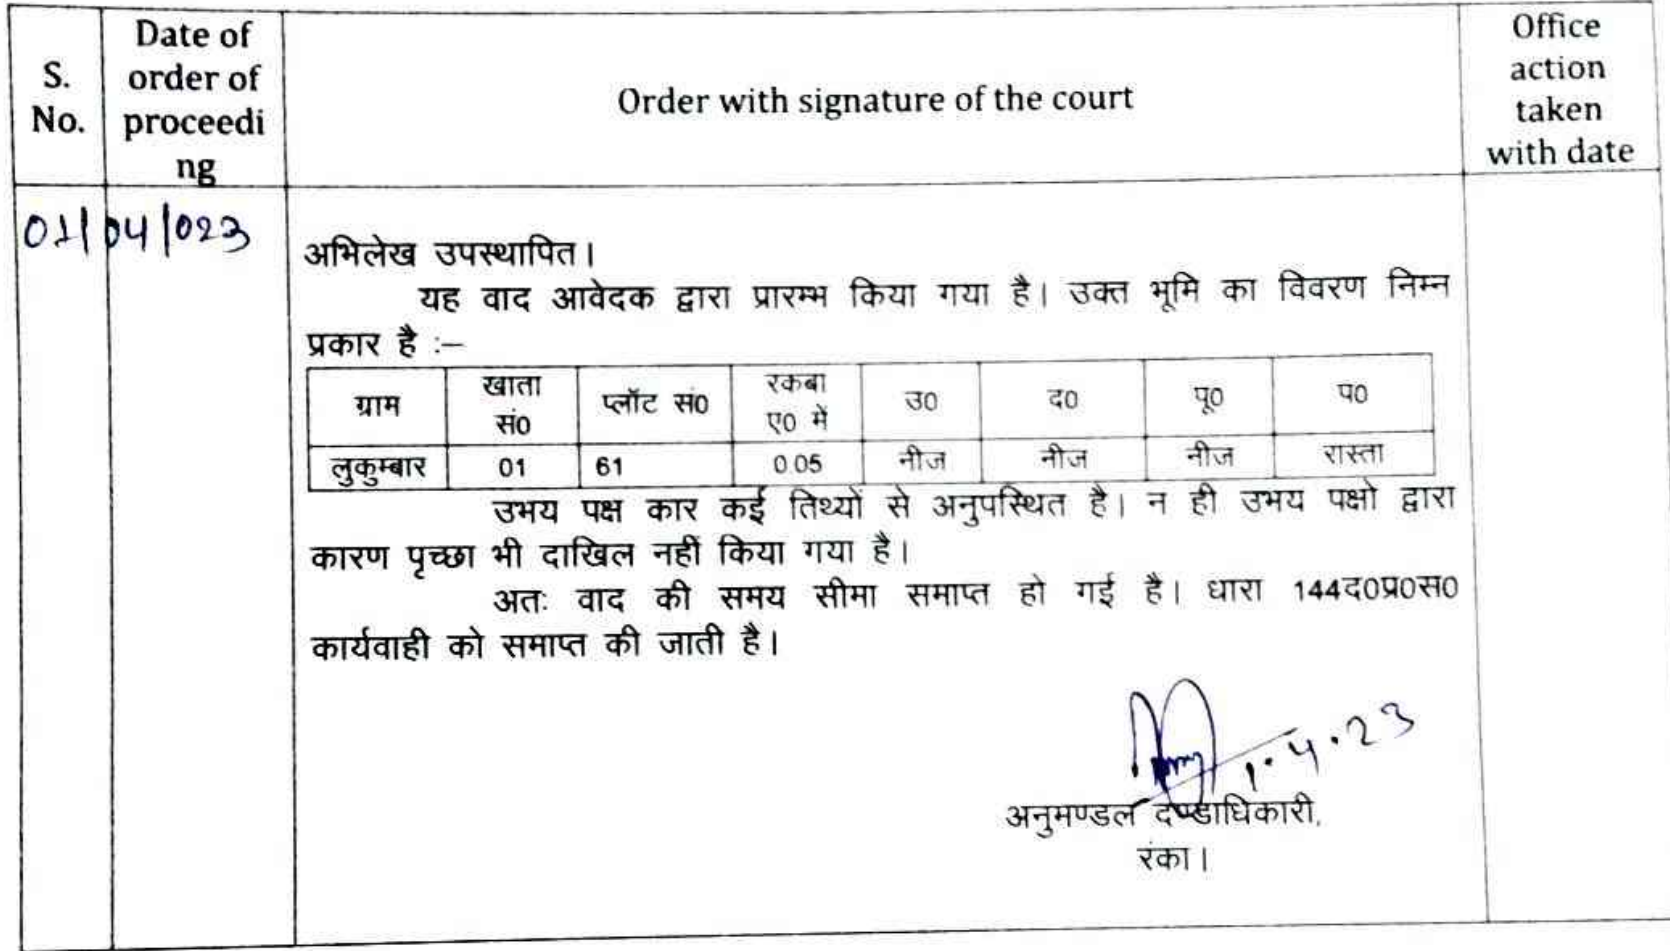 S. No.
Date of order of proceedi ng
Order with signature of the court
Office action taken with date
01/04/023
अभिलेख उपस्थापित।
यह वाद आवेदक द्वारा प्रारम्भ किया गया है। उक्त भूमि का विवरण निम्न
प्रकार है :–
ग्राम खाता सं0 प्लॉट सं0 रकबा ए0 में उ0 द0 पू0 प0
लुकुम्बार 01 61 0.05 नीज नीज नीज रास्ता
उभय पक्ष कार कई तिथ्यों से अनुपस्थित है। न ही उभय पक्षो द्वारा
कारण पृच्छा भी दाखिल नहीं किया गया है।
अतः वाद की समय सीमा समाप्त हो गई है। धारा 144द0प्र0स0
कार्यवाही को समाप्त की जाती है।
1.4.23
अनुमण्डल दण्डाधिकारी,
रंका।